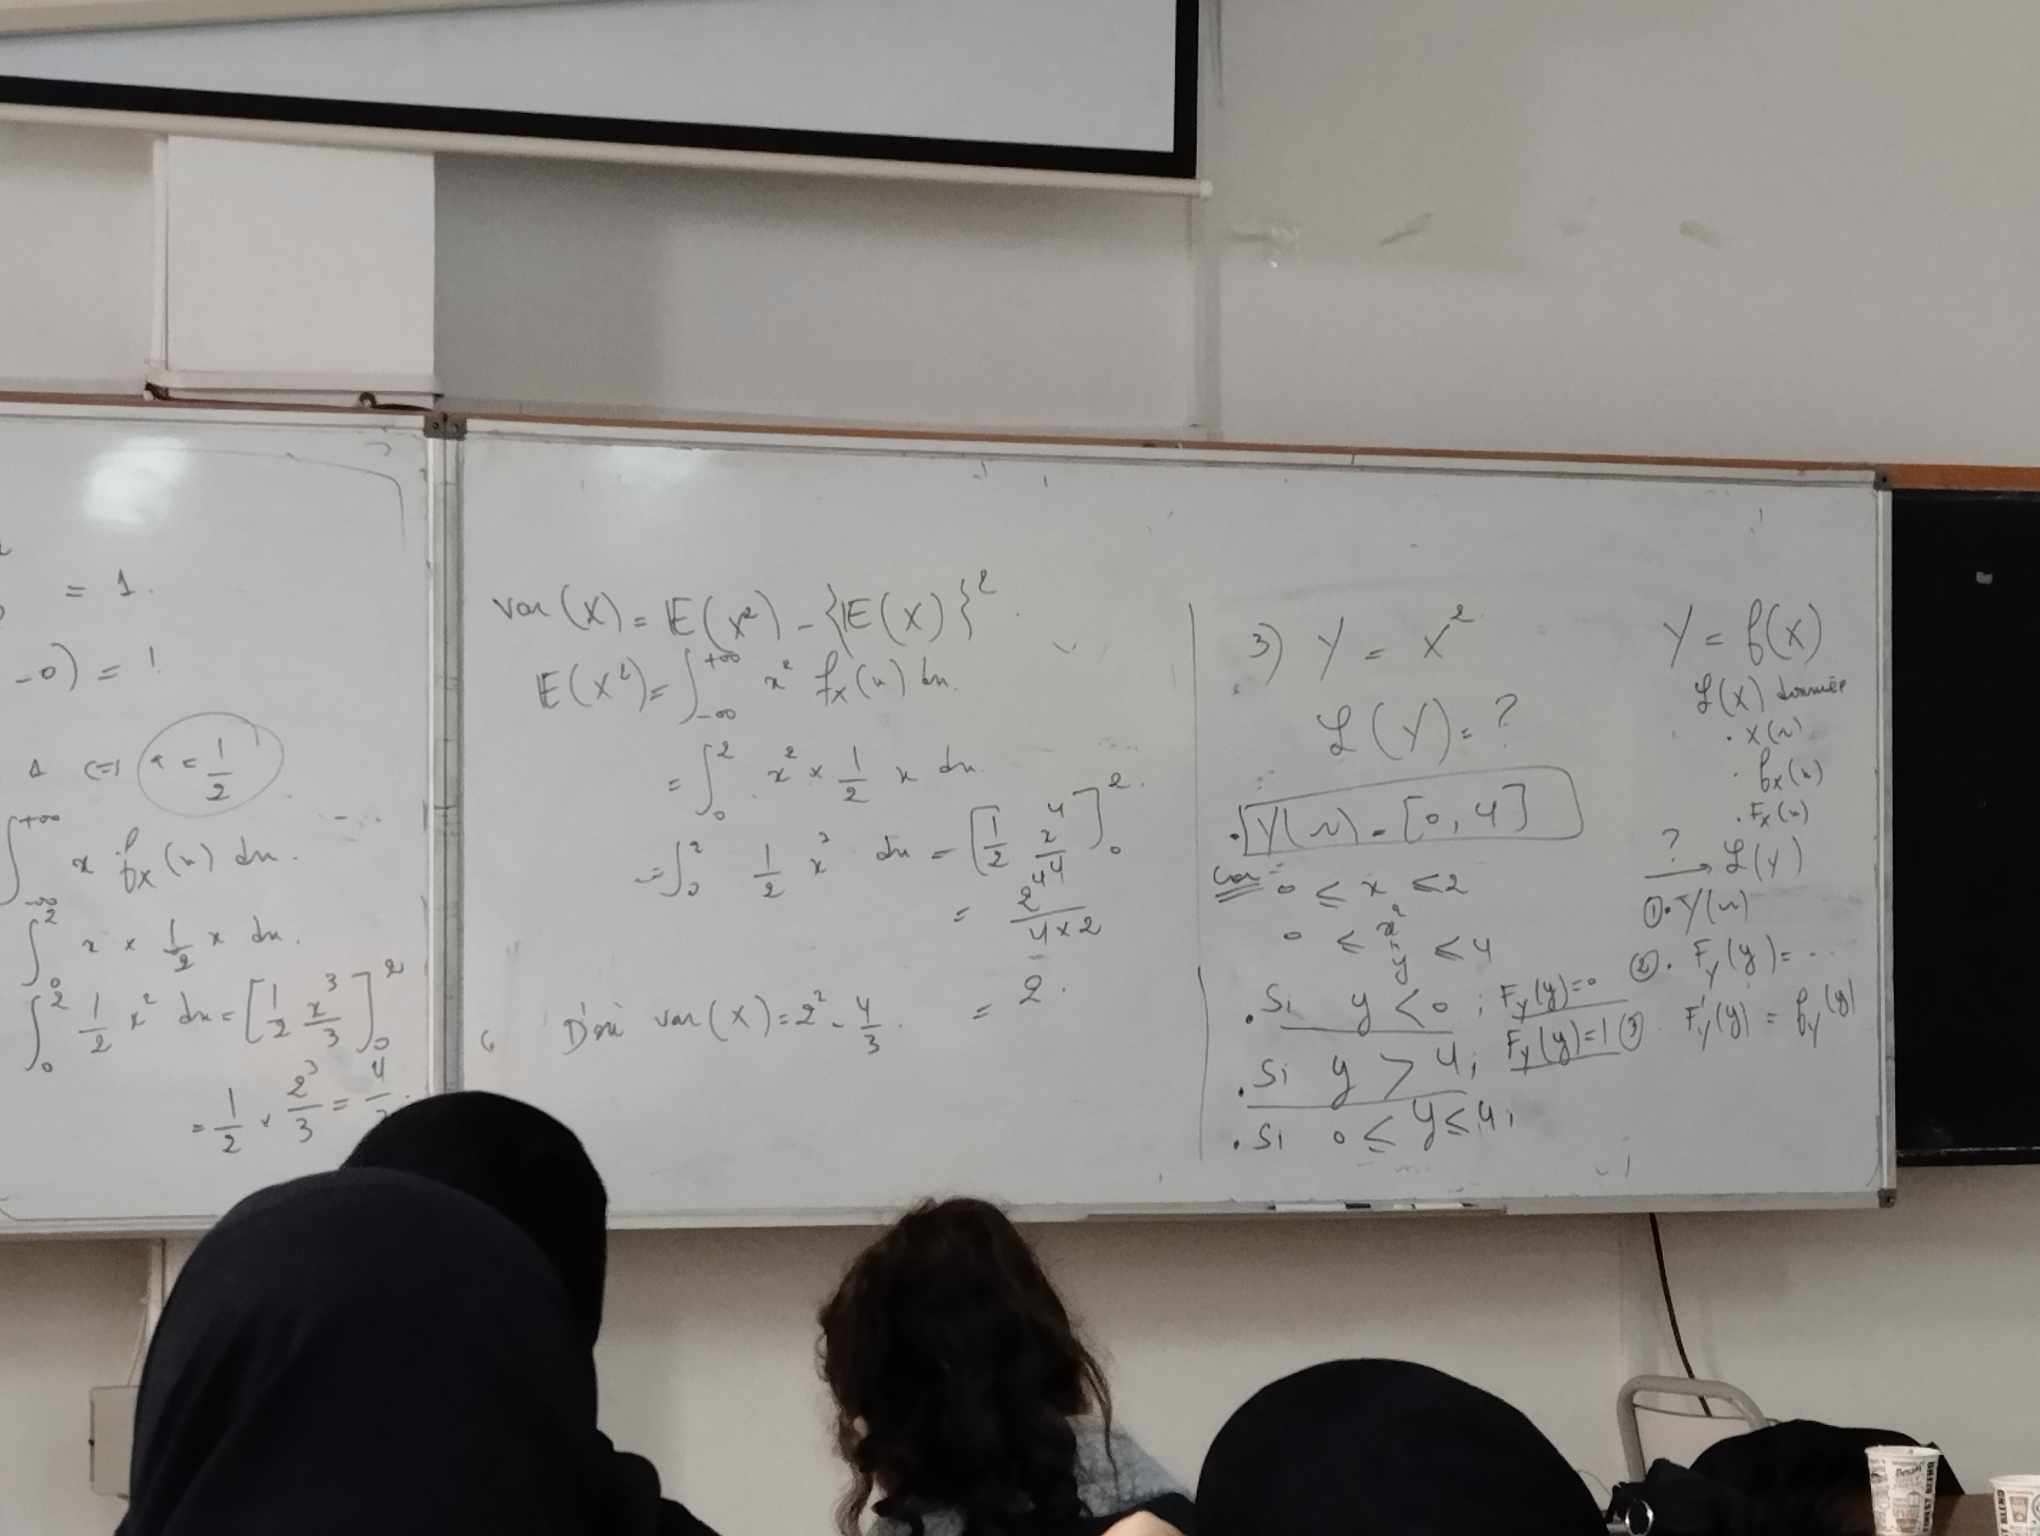 = 1.
-0) = 1
1 <=> a = 1/2
∫_{-∞}^{+∞} x f_X(x) dx.
∫_0^2 x × 1/2 x dx.
∫_0^2 1/2 x² dx = [1/2 x³/3]_0^2
= 1/2 × 2³/3 = 4/
var(X) = E(X²) - {E(X)}²
E(X²) = ∫_{-∞}^{+∞} x² f_X(x) dx.
= ∫_0^2 x² × 1/2 x dx
= ∫_0^2 1/2 x³ dx = [1/2 x⁴/4]_0^2.
= 2⁴/(4×2)
= 2.
D'où var(X) = 2² - 4/3.
3) Y = X²
ℒ(Y) = ?
. Y(Ω) = [0, 4]
Car 0 ≤ x ≤ 2
0 ≤ x² = y ≤ 4
. Si y < 0 ; F_Y(y) = 0
. Si y > 4 ; F_Y(y) = 1
. Si 0 ≤ y ≤ 4 ,
Y = f(X)
ℒ(X) donnée
. X(Ω)
. f_X(x)
. F_X(x)
? → ℒ(Y)
① . Y(Ω)
② . F_Y(y) = ...
③ . F'_Y(y) = f_Y(y)